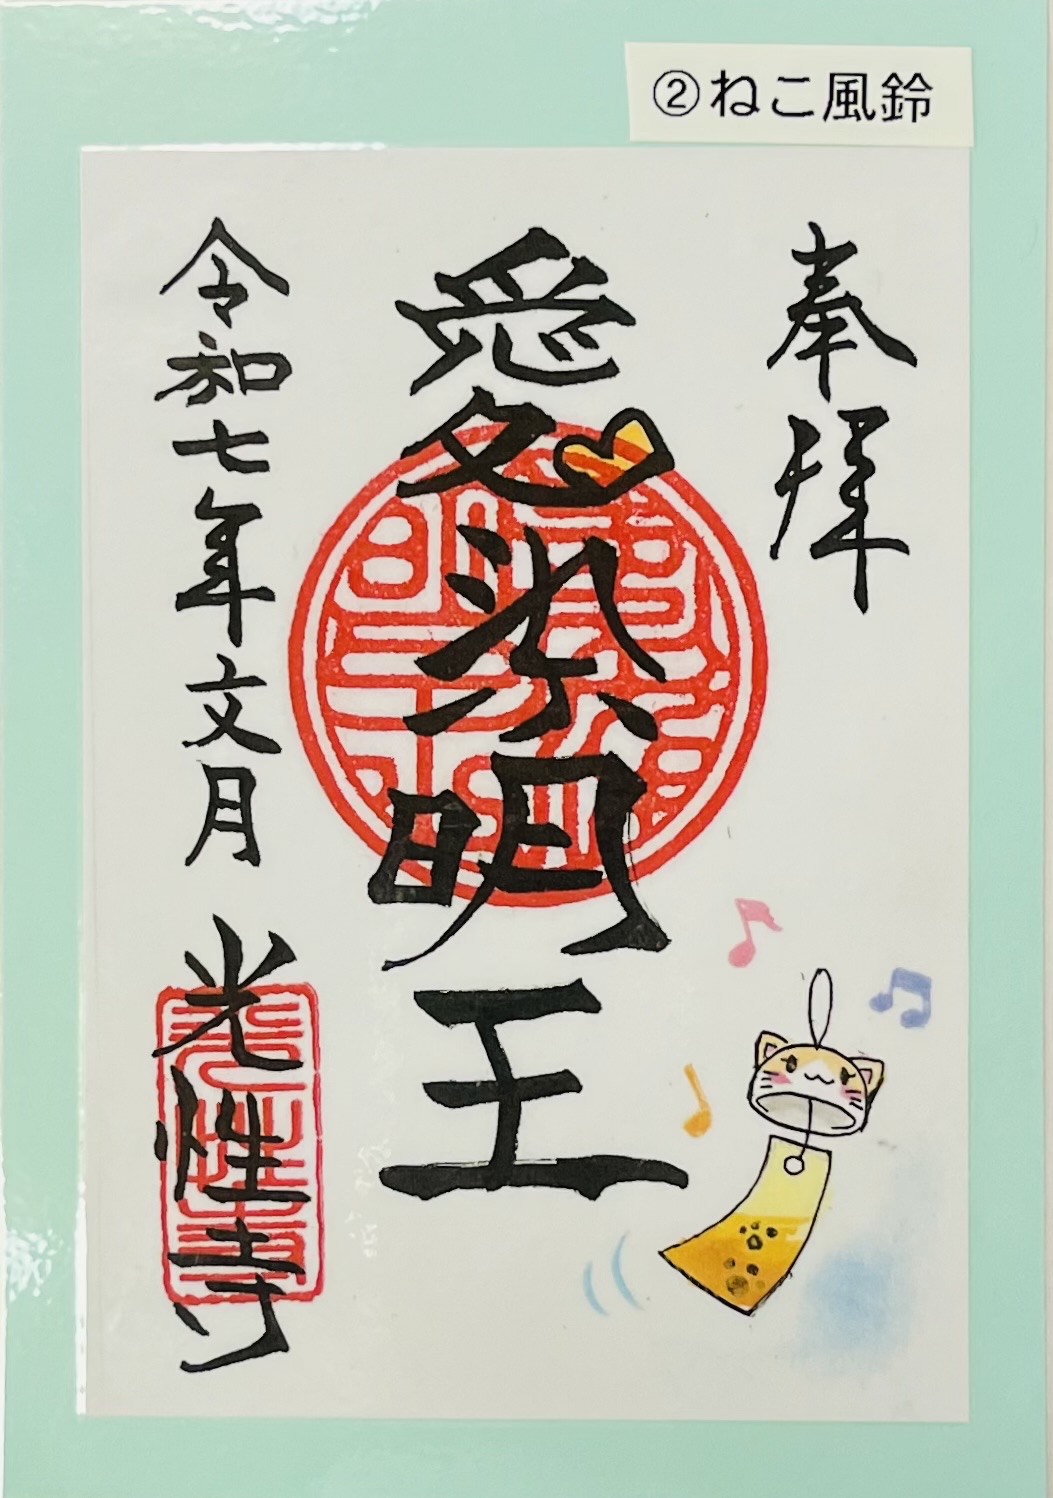 ②ねこ風鈴
奉拝
愛染明王
令和七年文月 光性寺